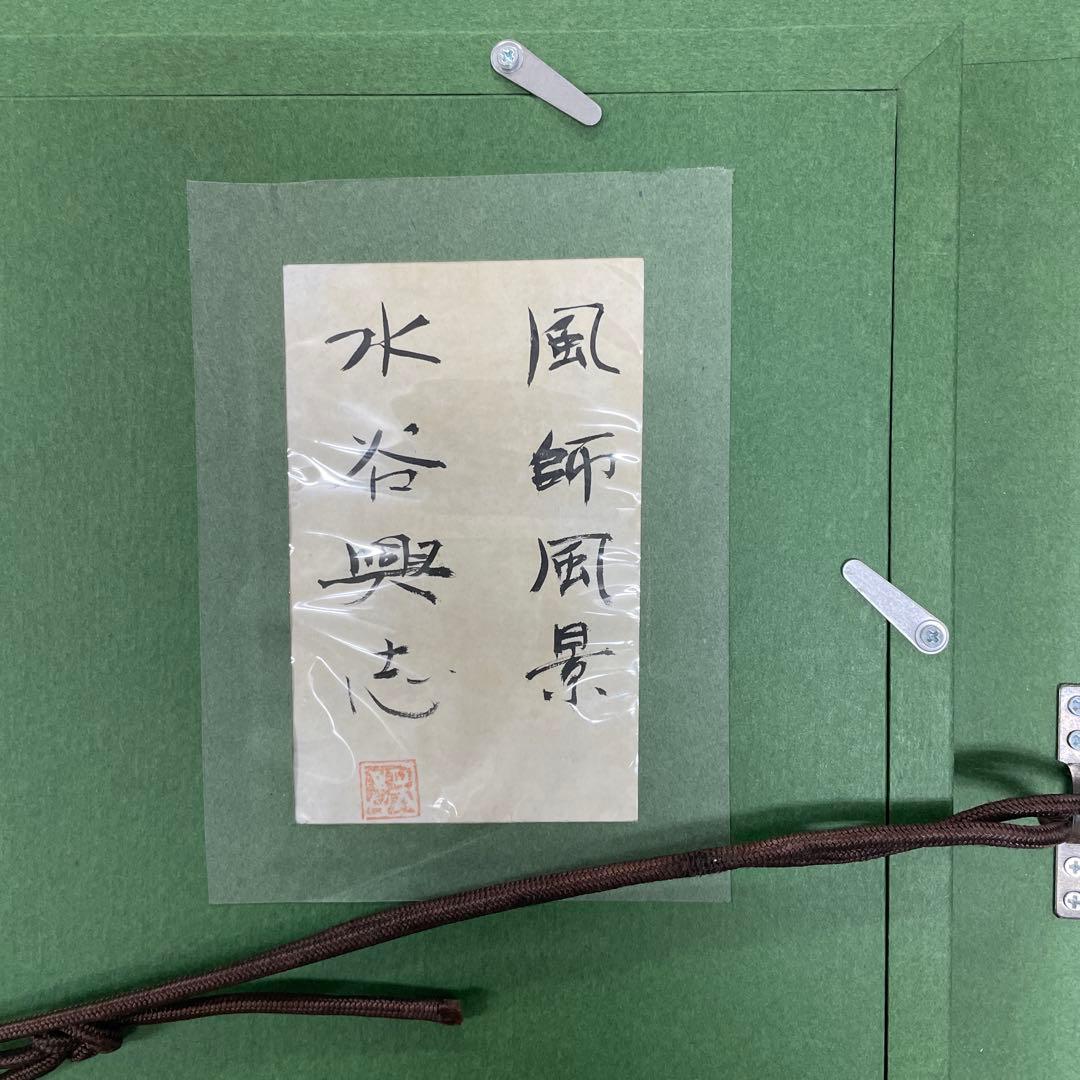 風師風景
水谷興志